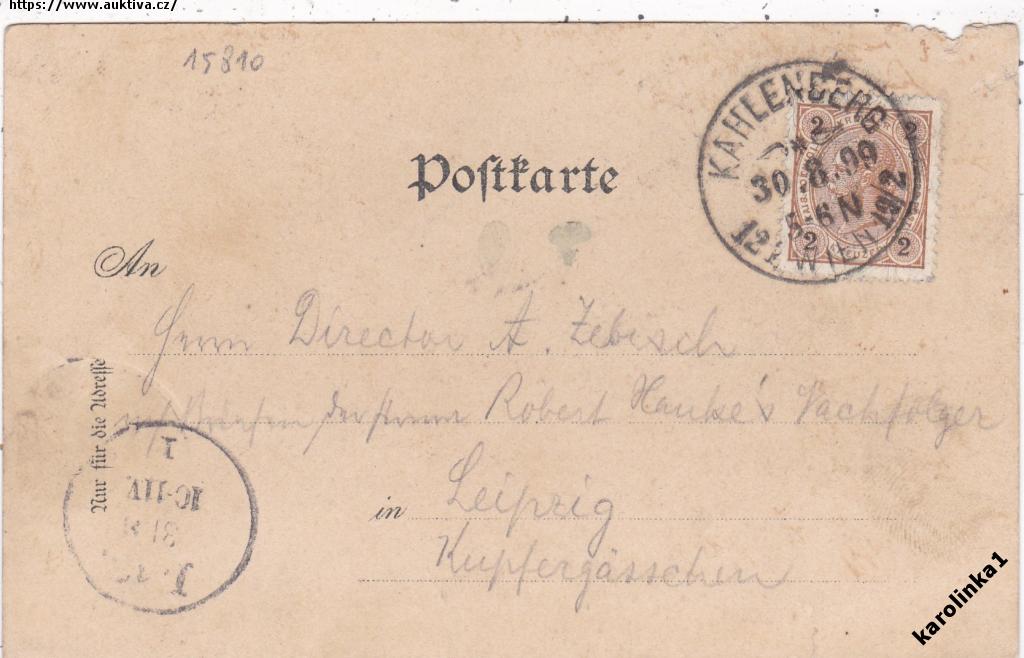 https://www.auktiva.cz/
15810
Postkarte
KAHLENBERG
30.8.99
5-6N
WIEN 19/2
2 2
2 2
An
Herrn Director A. Zebisch
der Firma Robert Hanke's Nachfolger
Nur für die Adresse
in Leipzig
Kupfergässchen
10-11V.
31
karolinka1